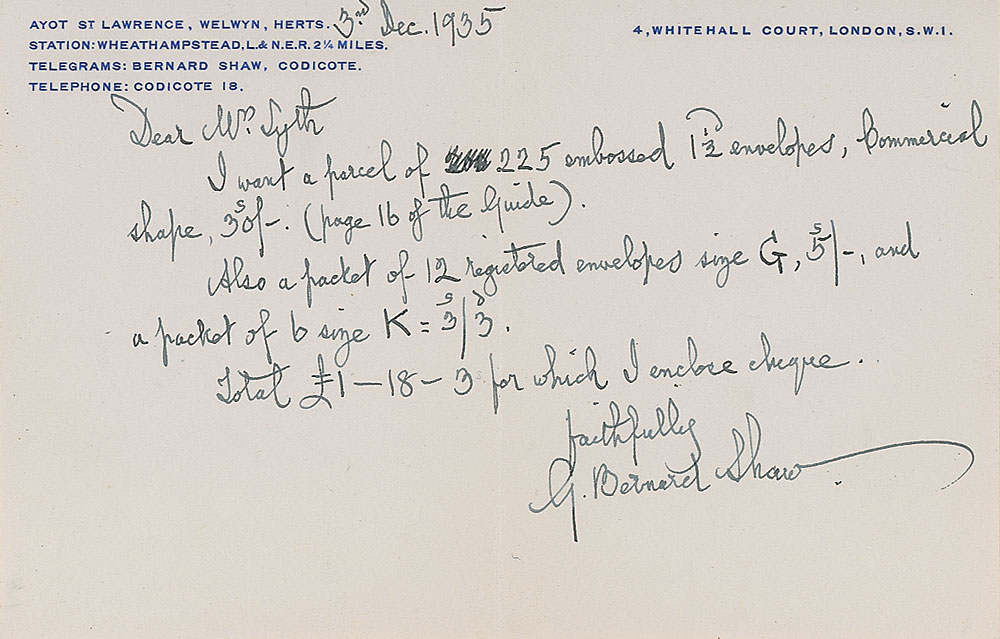 AYOT ST LAWRENCE, WELWYN, HERTS. 3rd Dec. 1935
STATION: WHEATHAMPSTEAD, L. & N.E.R. 2¼ MILES.
TELEGRAMS: BERNARD SHAW, CODICOTE.
TELEPHONE: CODICOTE 18.
4, WHITEHALL COURT, LONDON, S.W.1.
Dear Mrs Lyth
I want a parcel of 225 embossed 1½d envelopes, Commercial
shape, 30s/-. (page 16 of the Guide).
Also a packet of 12 registered envelopes size G, 5s/-, and
a packet of 6 size K = 3s/3d.
Total £1-18-3 for which I enclose cheque.
faithfully
G. Bernard Shaw